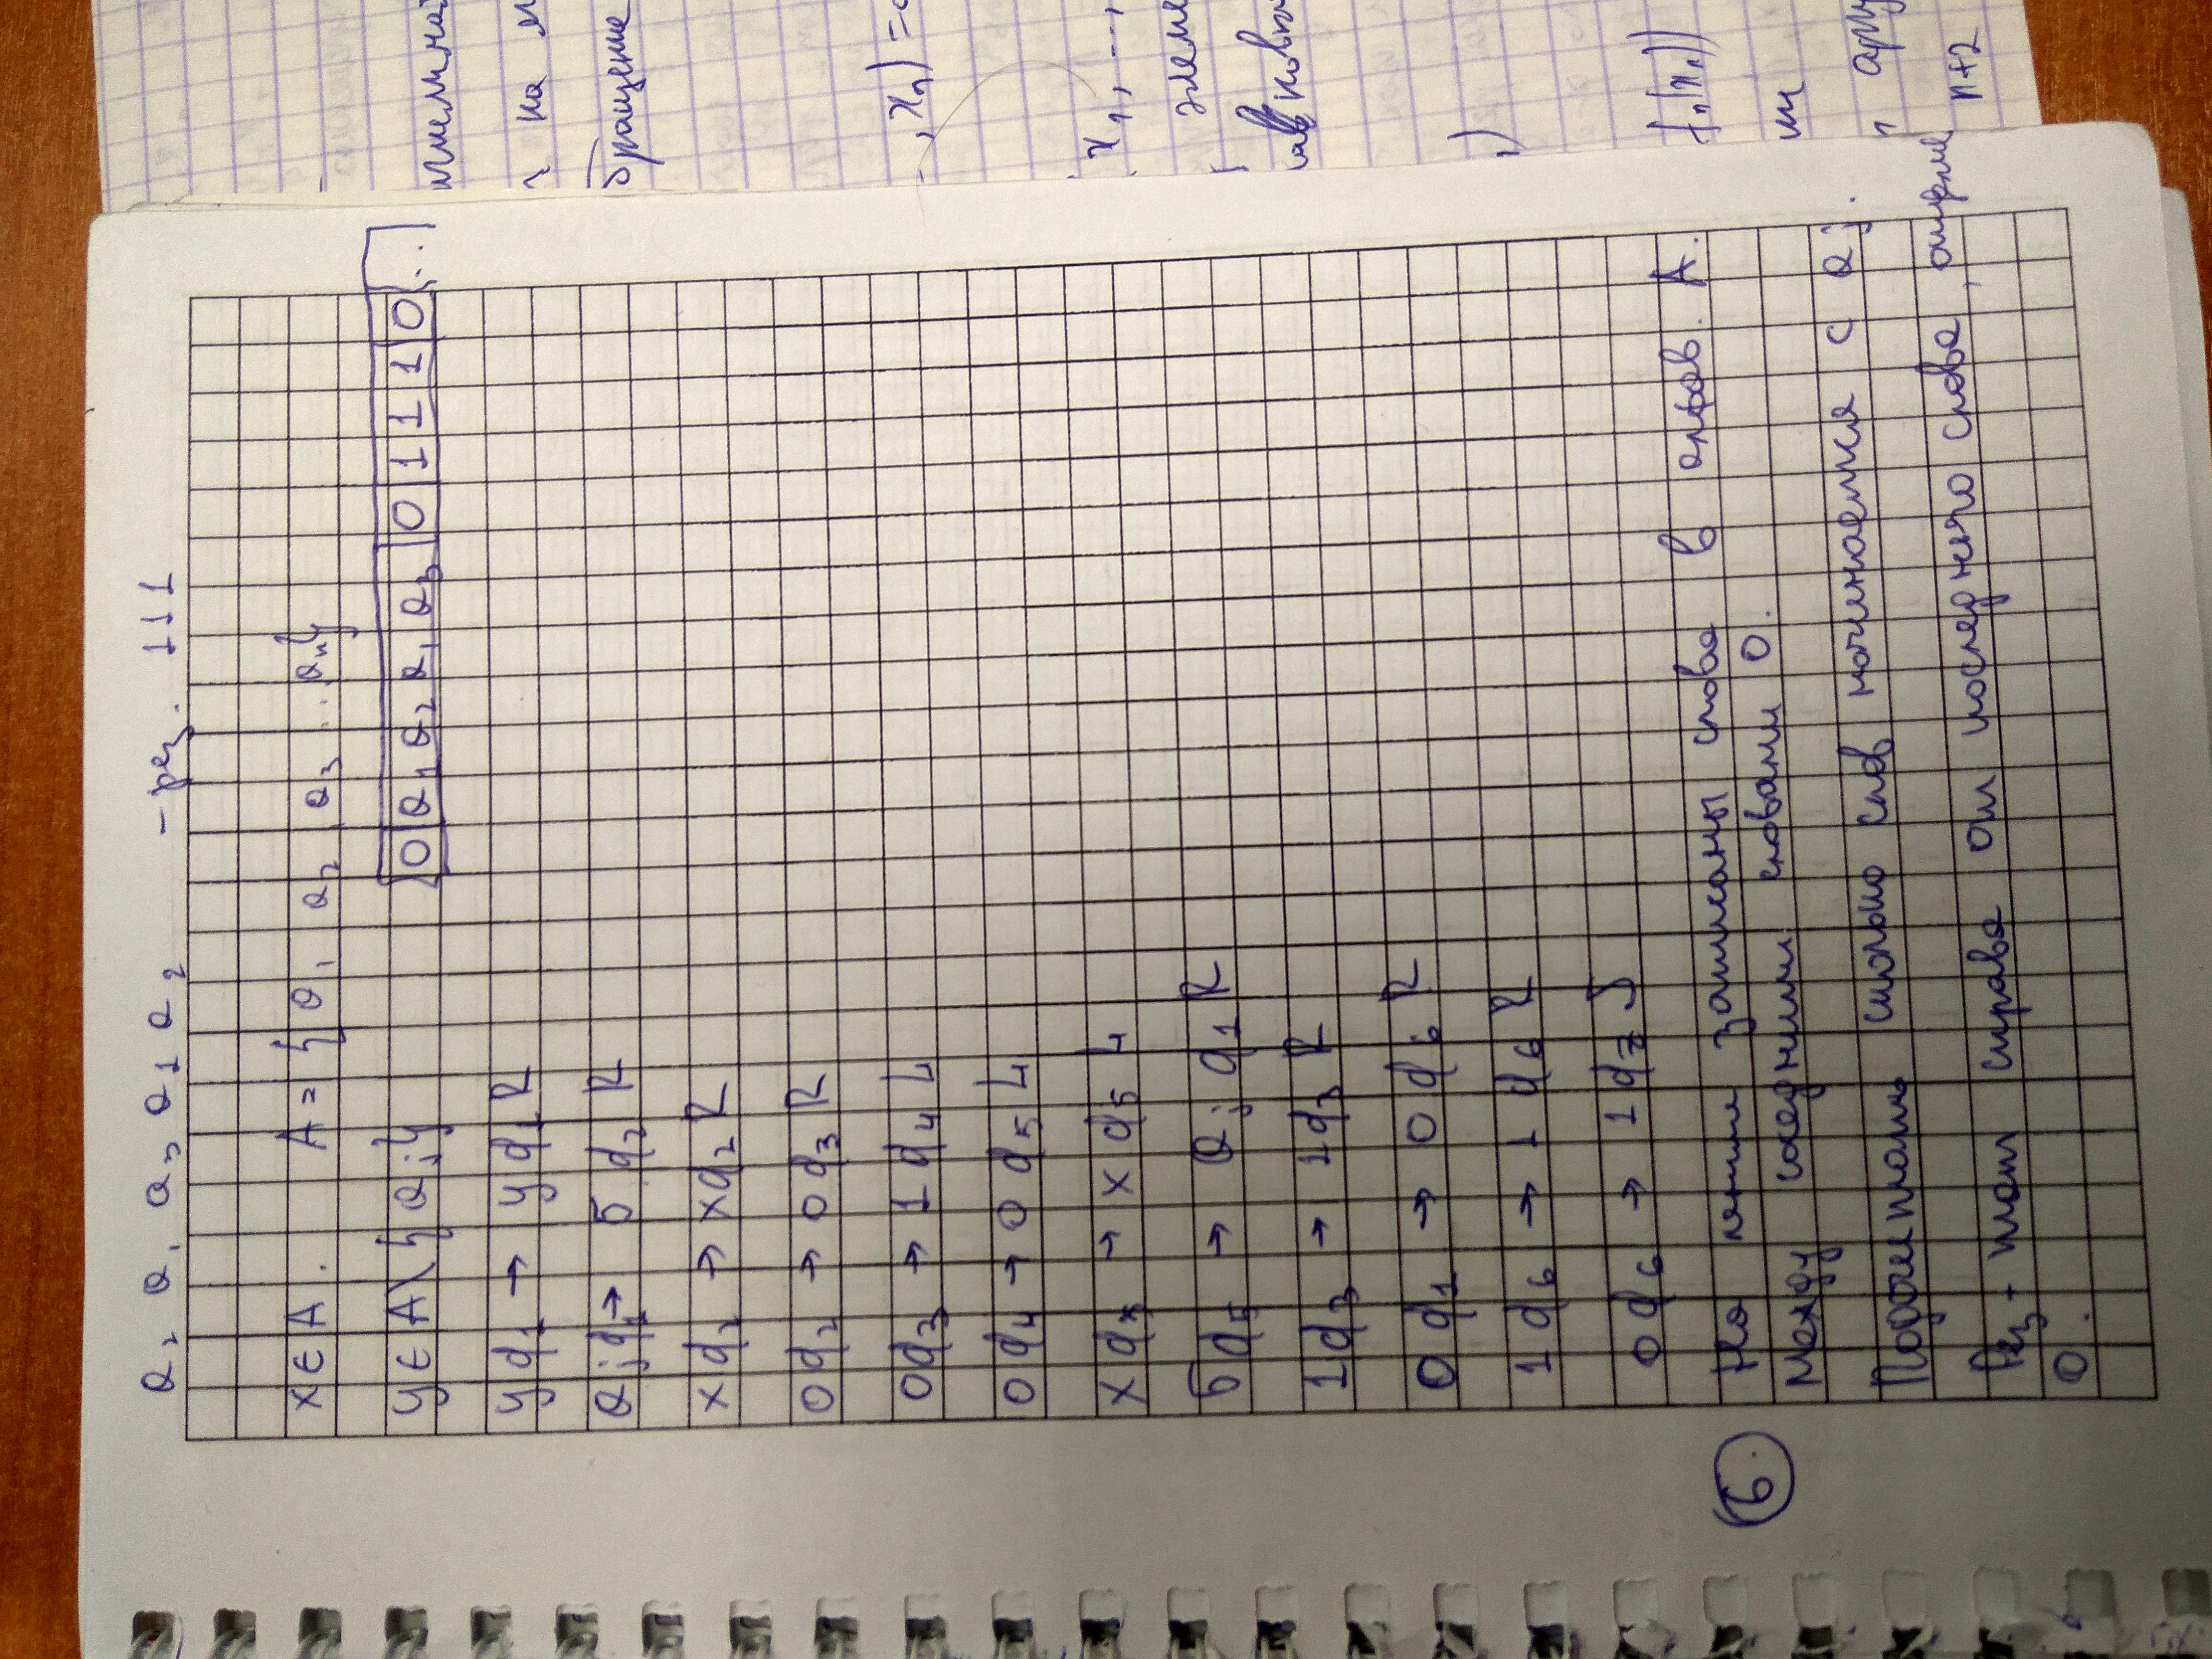 a₂ a₁ a₃ a₁ a₂ – рез. 111
x ∈ A. A = { a₁ a₂ a₃ ... aₙ }
y ∈ A \ { aⱼ }
0 a₁ a₂ a₁ a₃ 0 1 1 1 0 ...
y q₁ → y q₁ R
aⱼ q₁ → Б q₂ R
x q₂ → x q₂ R
0 q₂ → 0 q₃ R
0 q₃ → 1 q₄ L
0 q₄ → 0 q₅ L
x q₅ → x q₅ L
Б q₅ → aⱼ q₁ R
1 q₃ → 1 q₃ R
0 q₁ → 0 q₆ R
1 q₆ → 1 q₆ R
0 q₆ → 1 q₇ S
6 На ленте записаны слова в алфав. A.
Между соседними словами 0.
Подсчитать сколько слов начинается с aⱼ.
Рез-тат справа от последнего слова,
0.
на
бращение
, xₙ) =
x₁, ...,
n+2